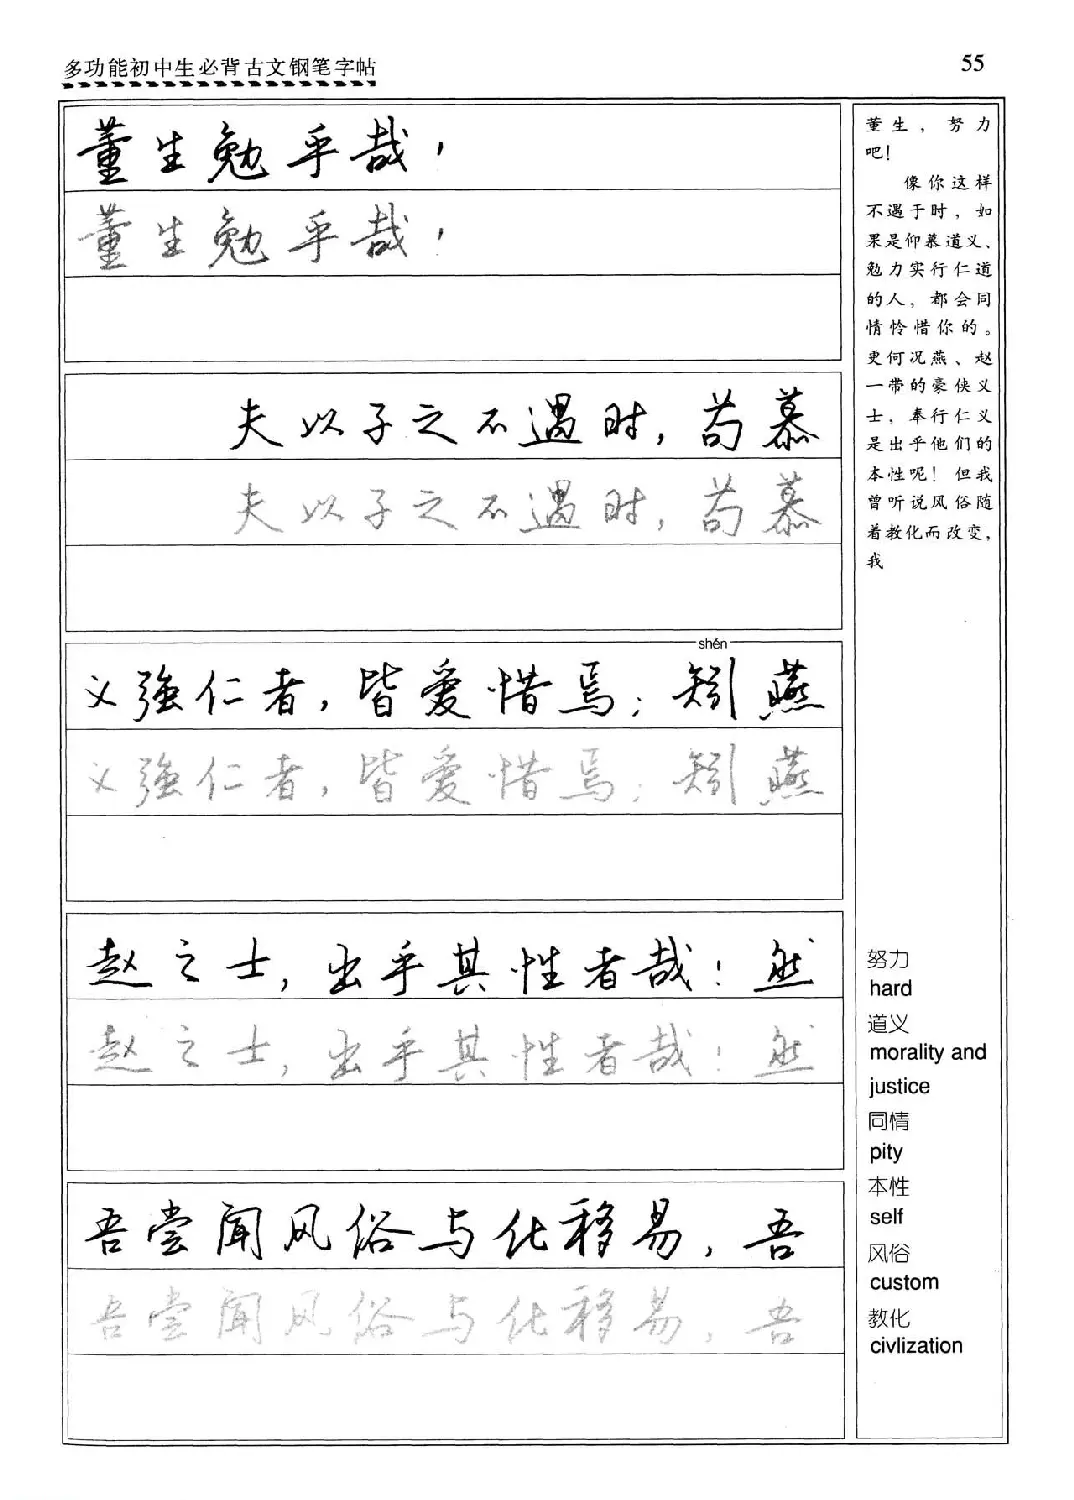 多功能初中生必背古文钢笔字帖
55
董生勉乎哉，
董生勉乎哉，
夫以子之不遇时，苟慕
夫以子之不遇时，苟慕
shén
义强仁者，皆爱惜焉；矧燕
义强仁者，皆爱惜焉；矧燕
赵之士，出乎其性者哉！然
赵之士，出乎其性者哉！然
吾尝闻风俗与化移易，吾
吾尝闻风俗与化移易，吾
董生，努力
吧！
像你这样
不遇于时，如
果是仰慕道义、
勉力实行仁道
的人，都会同
情怜惜你的。
更何况燕、赵
一带的豪侠义
士，奉行仁义
是出乎他们的
本性呢！但我
曾听说风俗随
着教化而改变，
我
努力
hard
道义
morality and
justice
同情
pity
本性
self
风俗
custom
教化
civlization